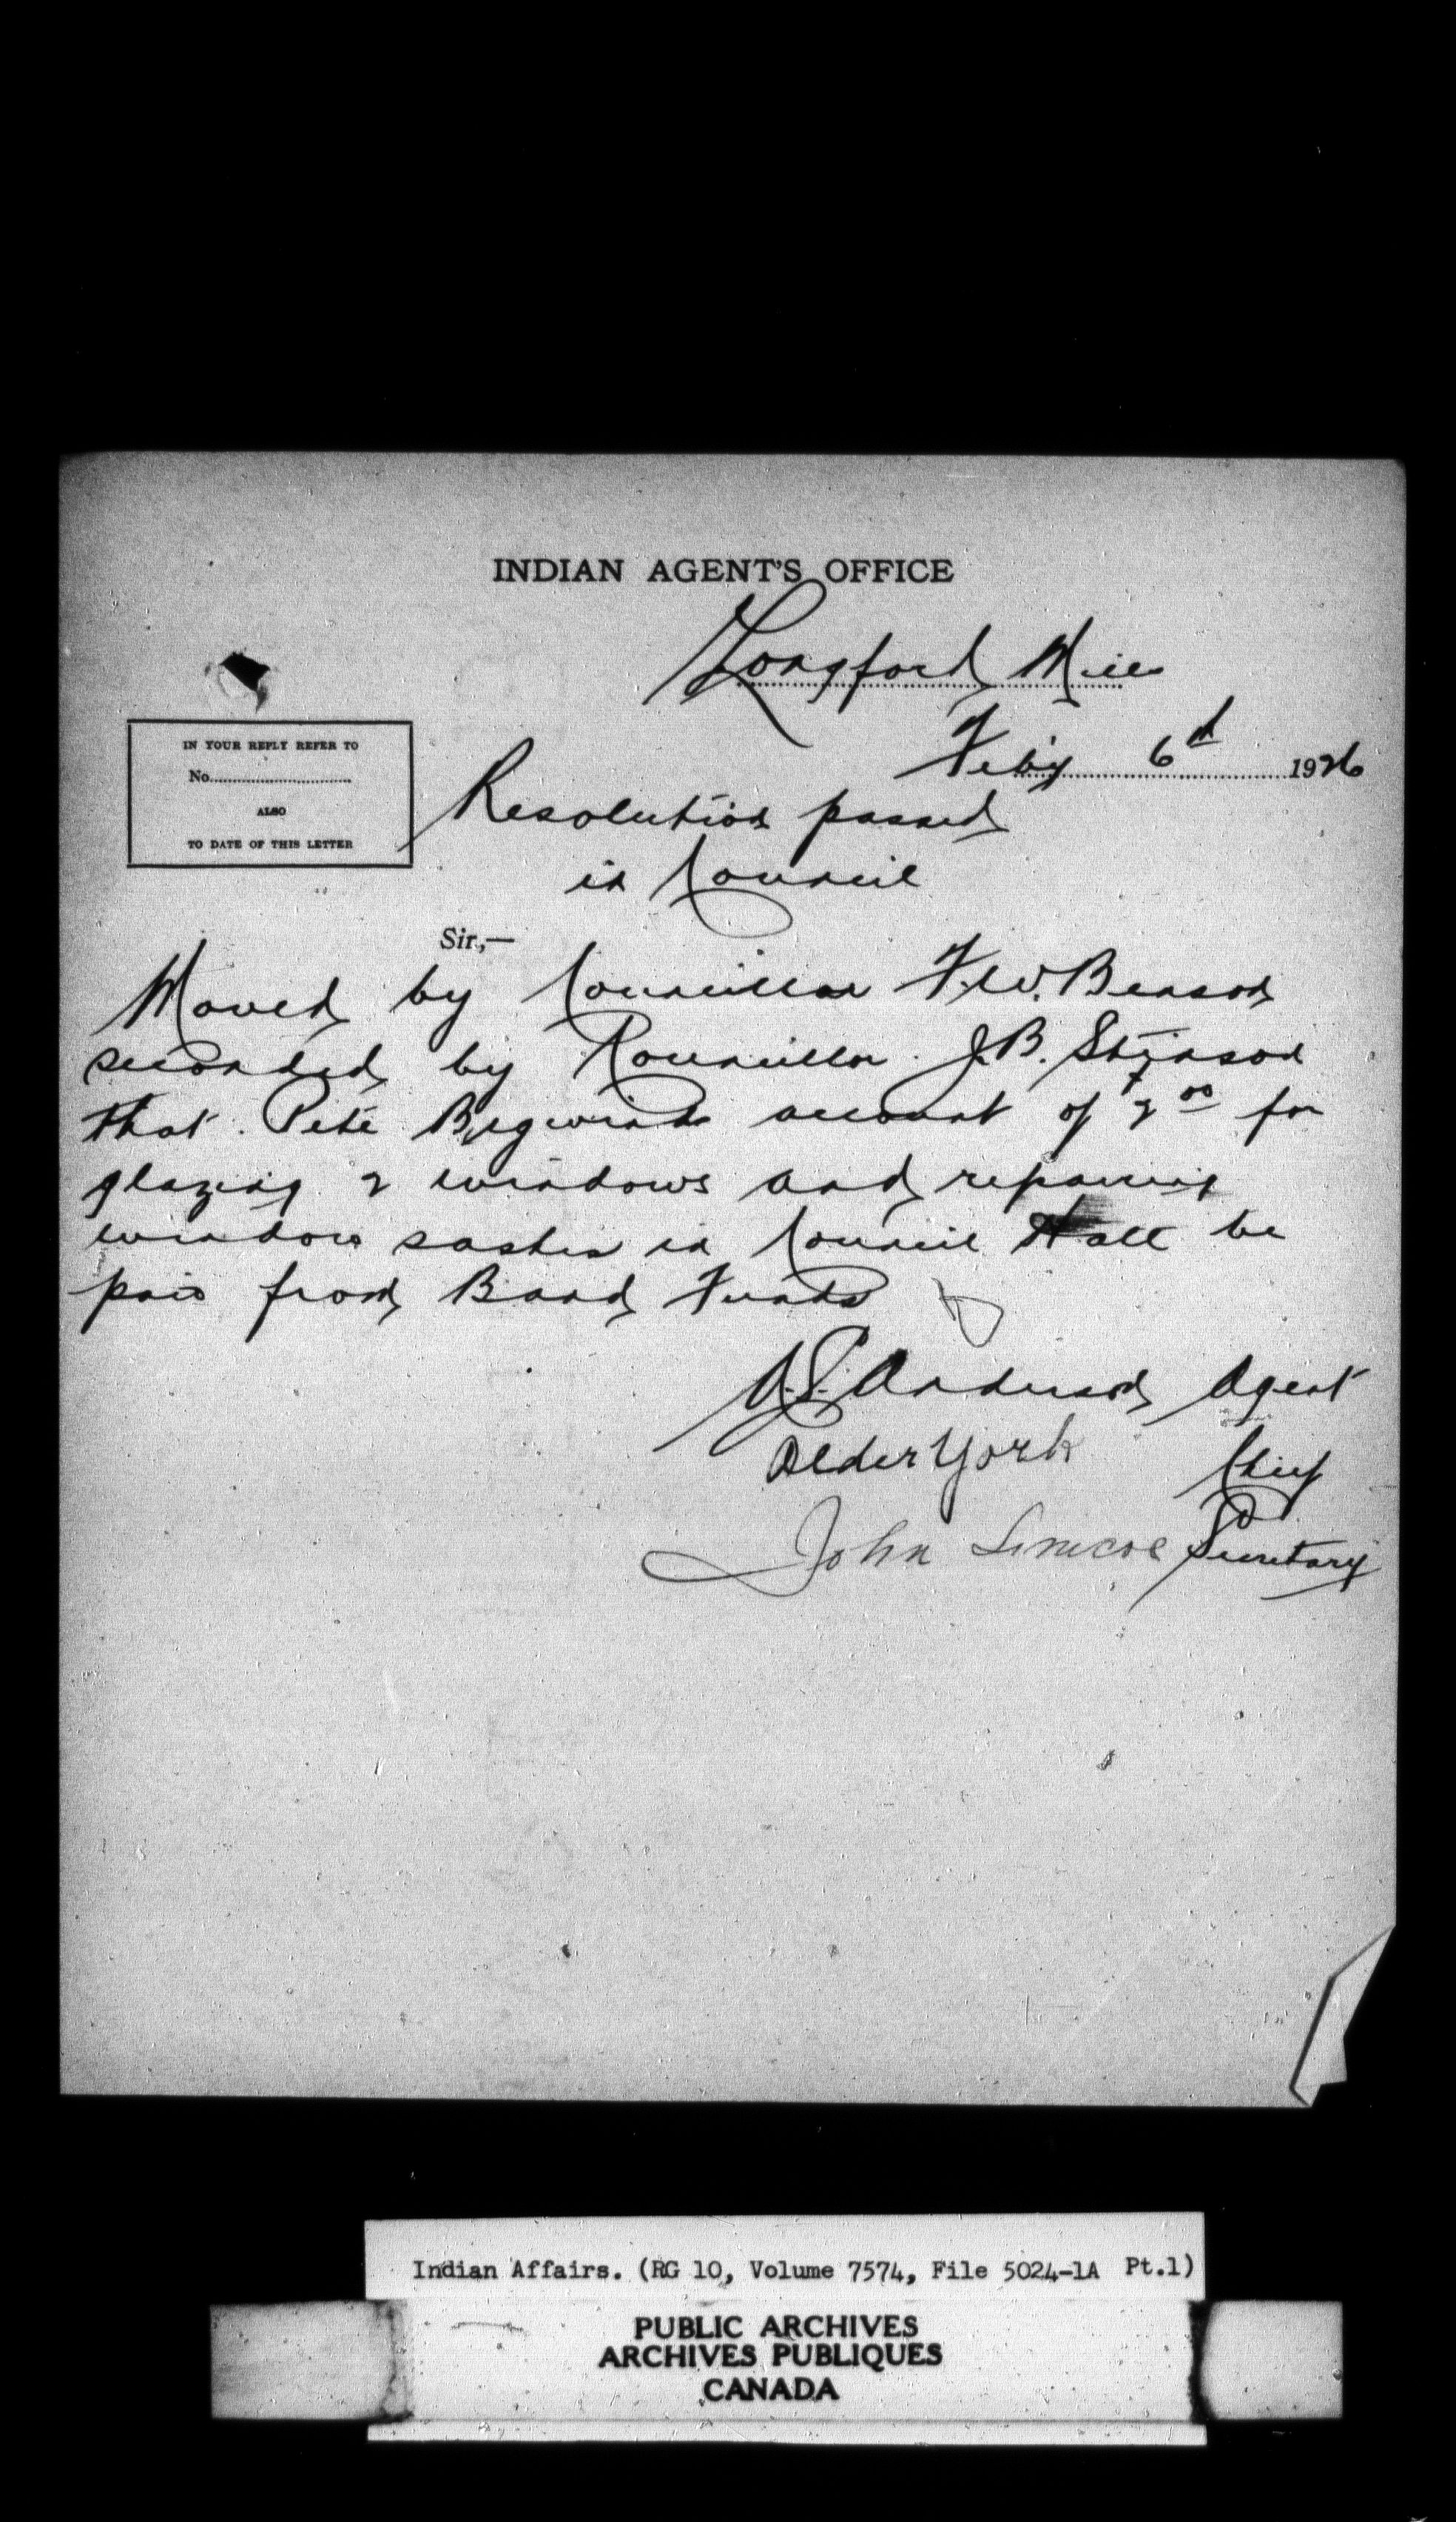 INDIAN AGENT'S OFFICE
Longford Mills
Feby 6th 1926
IN YOUR REPLY REFER TO
No.
ALSO
TO DATE OF THIS LETTER
Resolution passed
in Council
Sir,—
Moved by Councillor F.W. Benson
seconded by Councillor J.B. Stinson
that Pete Bigwinds account of 2 00 for
glazing 2 windows and repairing
window sashes in Council Hall be
paid from Band Funds
A.S. Anderson Agent
Alder York Chief
John Simcoe Secretary
Indian Affairs. (RG 10, Volume 7574, File 5024-1A Pt.1)
PUBLIC ARCHIVES
ARCHIVES PUBLIQUES
CANADA